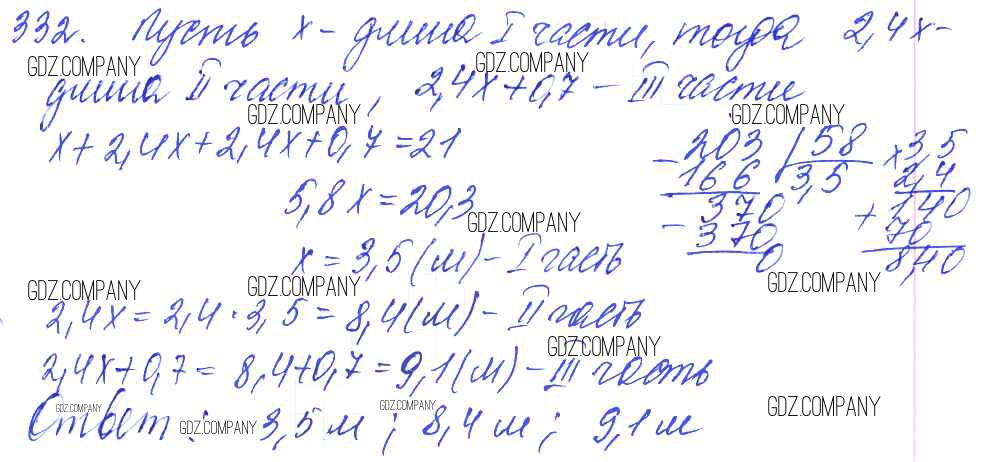 332. Пусть x - длина I части, тогда 2,4x -
GDZ.COMPANY GDZ.COMPANY
длина II части, 2,4x+0,7 - III части
GDZ.COMPANY GDZ.COMPANY
x+2,4x+2,4x+0,7=21
5,8x=20,3
GDZ.COMPANY
x=3,5(м) - I часть
- 203 | 58
166 3,5
- 370
370
0
x 3,5
2,4
+ 140
70
8,40
GDZ.COMPANY GDZ.COMPANY GDZ.COMPANY
2,4x=2,4·3,5=8,4(м) - II часть
GDZ.COMPANY
2,4x+0,7=8,4+0,7=9,1(м) - III часть
GDZ.COMPANY GDZ.COMPANY GDZ.COMPANY
Ответ: 3,5м; 8,4м; 9,1м
GDZ.COMPANY